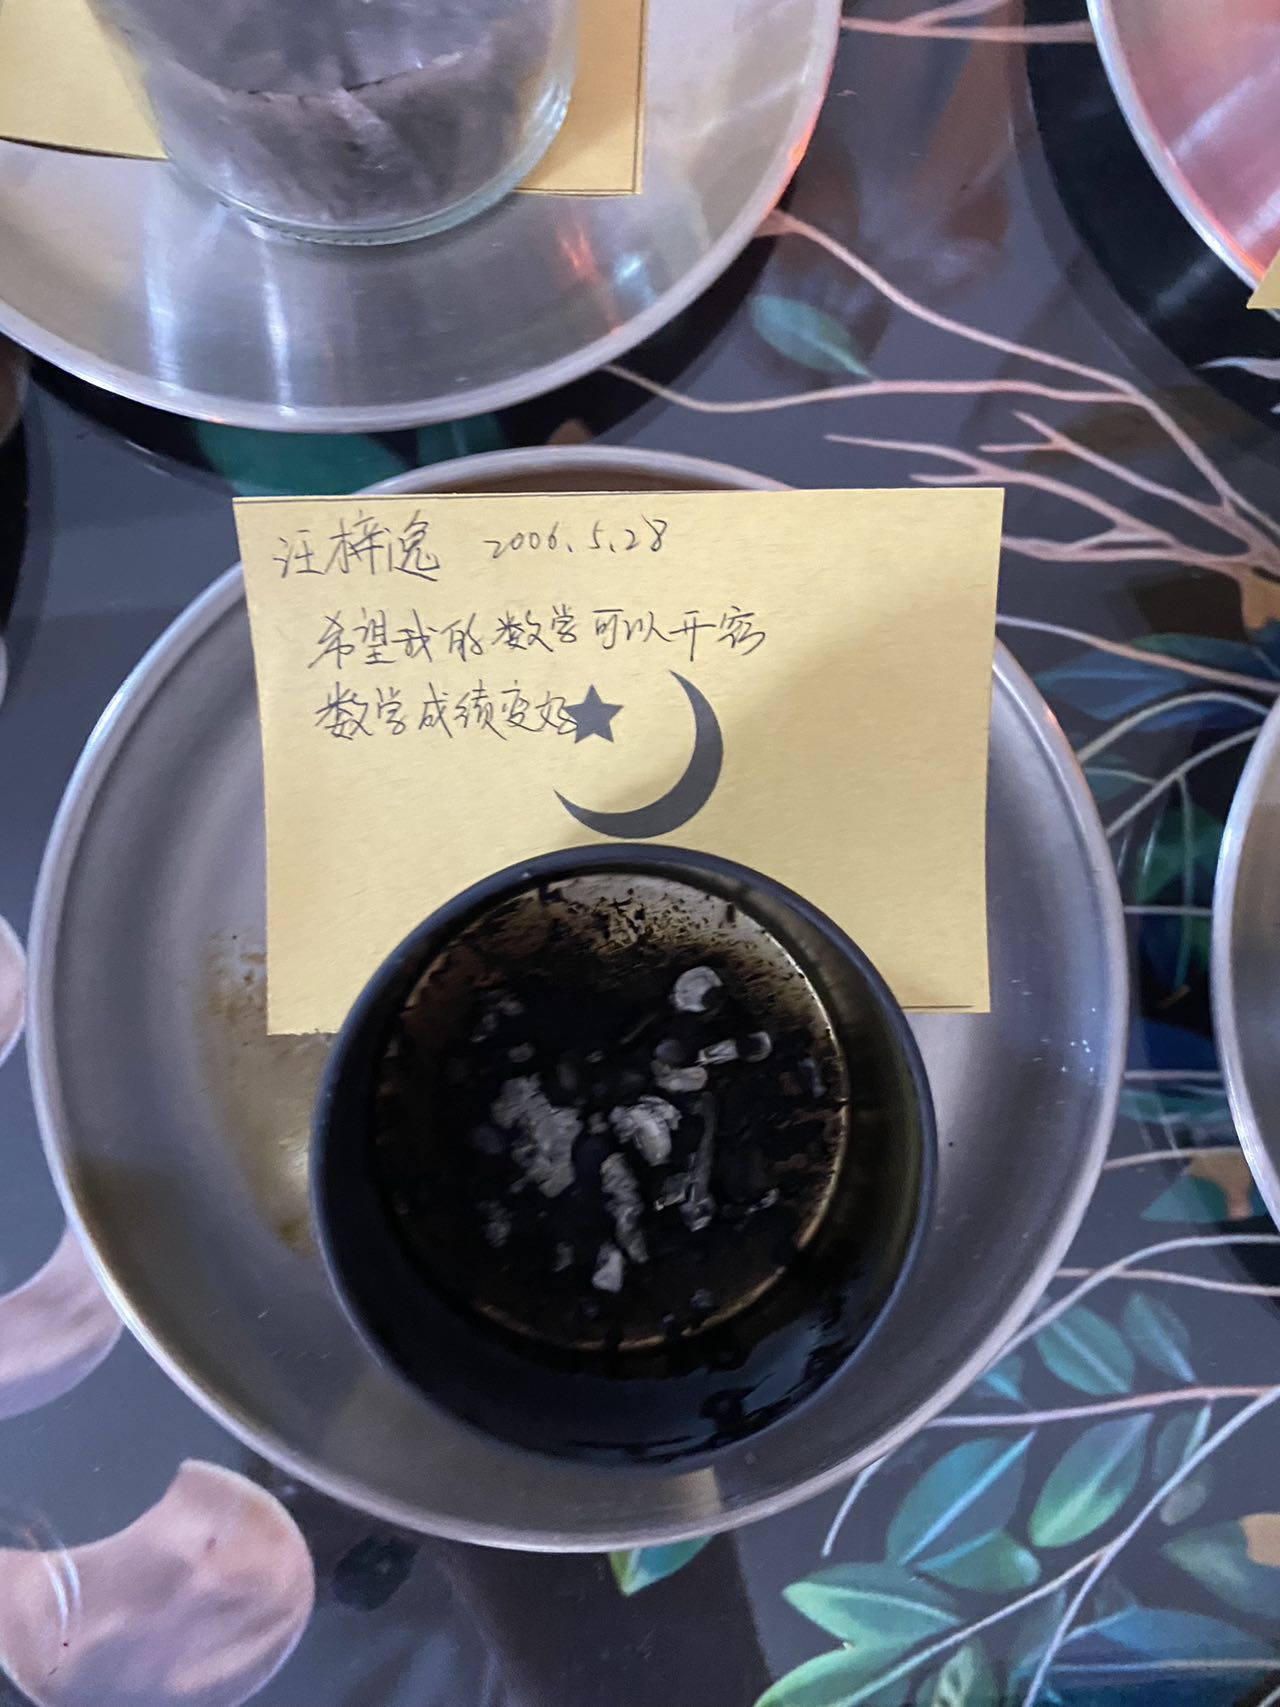 汪梓逸 2006.5.28
希望我的数学可以开窍
数学成绩变好